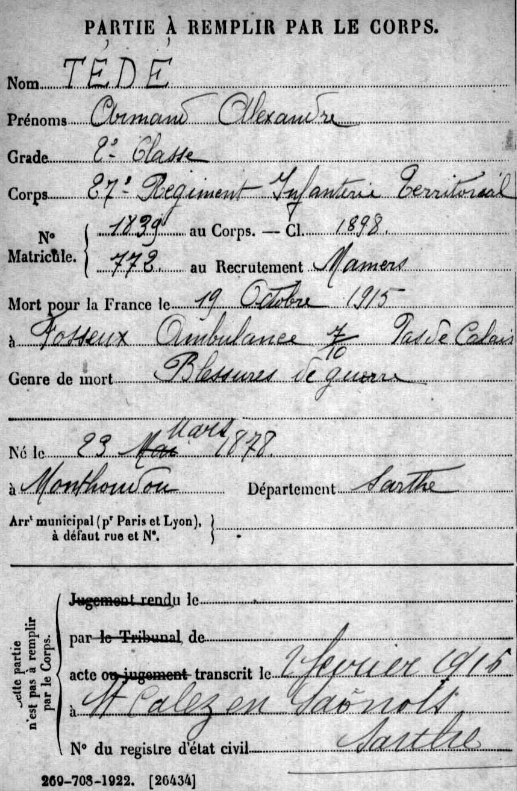 PARTIE À REMPLIR PAR LE CORPS.
Nom TÉDÉ
Prénoms Armand Alexandre
Grade 2e Classe
Corps 27e Régiment Infanterie Territorial
Nº Matricule. { 1839 au Corps. — Cl. 1898.
772 au Recrutement Mamers
Mort pour la France le 19 Octobre 1915
à Fosseux Ambulance 7/10 Pas de Calais
Genre de mort Blessures de guerre
Mars
Né le 23 Mai 1878
à Monthoudou Département Sarthe
Arrt municipal (pr Paris et Lyon),
à défaut rue et Nº.
Cette partie n'est pas à remplir par le Corps.
Jugement rendu le
par le Tribunal de
acte ou jugement transcrit le 2 février 1916
à St Calez en Saônois
Sarthe
Nº du registre d'état civil
269-708-1922. [26434]